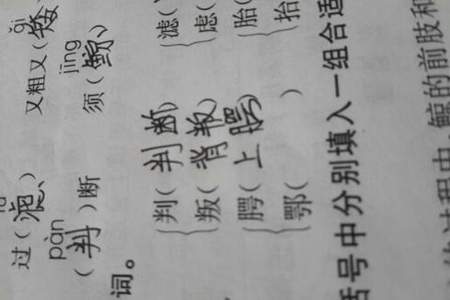 gǐ
又粗又(矮)
jīng
须(鲸)
过(滤)
pàn
(判)断
词。
滤(
虑(
胎(
抬(
判(判断)
叛(背叛)
腭(上腭)
鄂( )
括号中分别填入一组合适
的过程中,鲸的前肢和